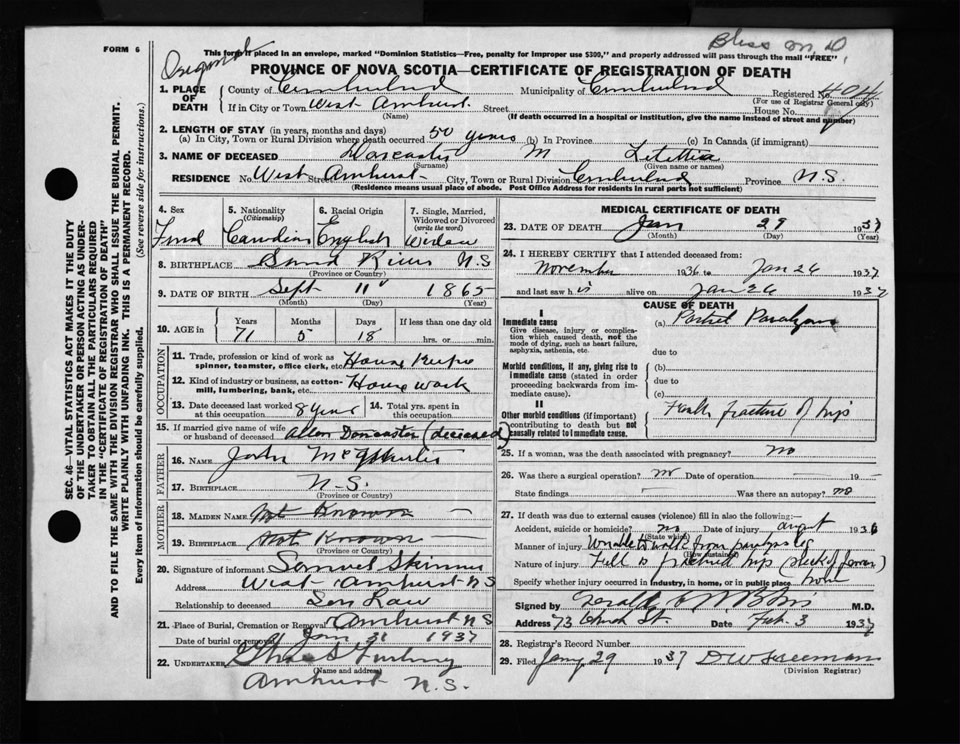 Bliss M.D.
FORM 6
This form if placed in an envelope, marked "Dominion Statistics—Free, penalty for improper use $300," and properly addressed will pass through the mail "FREE"
PROVINCE OF NOVA SCOTIA—CERTIFICATE OF REGISTRATION OF DEATH
1. PLACE OF DEATH
County of Cumberland Municipality of Cumberland Registered No. 404
(For use of Registrar General only)
If in City or Town West Amherst Street House No.
(Name) (If death occurred in a hospital or institution, give the name instead of street and number)
2. LENGTH OF STAY (in years, months and days)
(a) In City, Town or Rural Division where death occurred 50 years (b) In Province (c) In Canada (if immigrant)
3. NAME OF DECEASED Doncaster M Letettia
(Surname) (Given name or names)
RESIDENCE No. West Street Amherst City, Town or Rural Division Cumberland Province N.S.
(Residence means usual place of abode. Post Office Address for residents in rural parts not sufficient)
4. Sex 5. Nationality (Citizenship) 6. Racial Origin 7. Single, Married, Widowed or Divorced (write the word)
Canadian English Widow
8. BIRTHPLACE Sand River N S
(Province or Country)
9. DATE OF BIRTH Sept 11 1865
(Month) (Day) (Year)
10. AGE in Years Months Days If less than one day old
71 5 18 hrs. or min.
OCCUPATION
11. Trade, profession or kind of work as spinner, teamster, office clerk, etc. House Keeper
12. Kind of industry or business, as cotton-mill, lumbering, bank, etc. House work
13. Date deceased last worked at this occupation 8 years 14. Total yrs. spent in this occupation
15. If married give name of wife or husband of deceased Allen Doncaster (deceased)
FATHER
16. NAME John
17. BIRTHPLACE N.S.
(Province or Country)
MOTHER
18. MAIDEN NAME Not Known
19. BIRTHPLACE Not Known
(Province or Country)
20. Signature of informant Samuel Skinner
Address West Amherst N S
Relationship to deceased Son Law
21. Place of Burial, Cremation or Removal Amherst N S
Date of burial or removal Jan 31 1937
22. UNDERTAKER
(Name and address)
Amherst N.S.
MEDICAL CERTIFICATE OF DEATH
23. DATE OF DEATH Jan 29 1937
(Month) (Day) (Year)
24. I HEREBY CERTIFY that I attended deceased from:
November 1936 to Jan 26 1937
and last saw h alive on Jan 26 1937
CAUSE OF DEATH
I
Immediate cause
Give disease, injury or complication which caused death, not the mode of dying, such as heart failure, asphyxia, asthenia, etc.
(a) Partial Paralysis
due to
Morbid conditions, if any, giving rise to immediate cause (stated in order proceeding backwards from immediate cause).
(b)
due to
(c)
II
Other morbid conditions (if important) contributing to death but not causally related to immediate cause.
fracture of hip
25. If a woman, was the death associated with pregnancy? no
26. Was there a surgical operation? no Date of operation 19
State findings Was there an autopsy? no
27. If death was due to external causes (violence) fill in also the following:—
Accident, suicide or homicide? no Date of injury August 1936
(State which)
Manner of injury Unable to walk from paralysis
(How sustained)
Nature of injury Fell & fractured hip
Specify whether injury occurred in industry, in home, or in public place home
Signed by Gerald Bliss M.D.
Address 73 Church St. Date Feb. 3 1937
28. Registrar's Record Number
29. Filed Jany 29 1937 D W Freeman
(Division Registrar)
SEC. 46—VITAL STATISTICS ACT MAKES IT THE DUTY
OF THE UNDERTAKER OR PERSON ACTING AS UNDER-
TAKER TO OBTAIN ALL THE PARTICULARS REQUIRED
IN THE "CERTIFICATE OF REGISTRATION OF DEATH"
AND TO FILE THE SAME WITH THE DIVISION REGISTRAR WHO SHALL ISSUE THE BURIAL PERMIT.
WRITE PLAINLY WITH UNFADING INK. THIS IS A PERMANENT RECORD.
Every item of information should be carefully supplied. (See reverse side for instructions.)